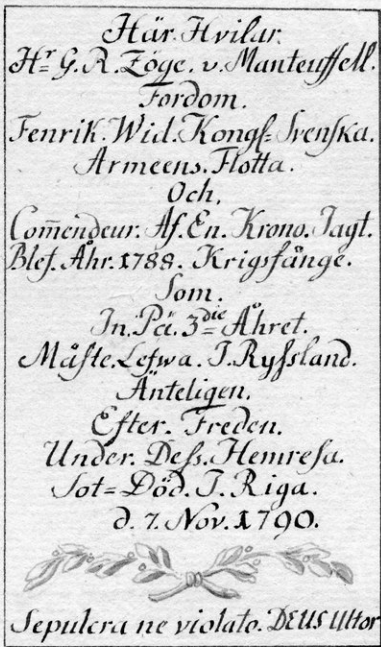 Här. Hvilar.
H.r G. R. Zöge. v. Manteuffell.
Fordom.
Fenrik. Wid. Kongſ= Svenſka.
Armeens. Flotta.
Och.
Com̄endeur. Af. En. Krono. Jagt.
Blef. Åhr. 1788. Krigsfånge.
Som.
In. På. 3die Åhret.
Måſte. Lefwa. I. Ryſsland.
Änteligen.
Efter. Freden.
Under. Deſs. Hemreſa.
Sot= Död. I. Riga.
d. 7. Nov. 1790.
Sepulcra ne violato. DEUS Ultor